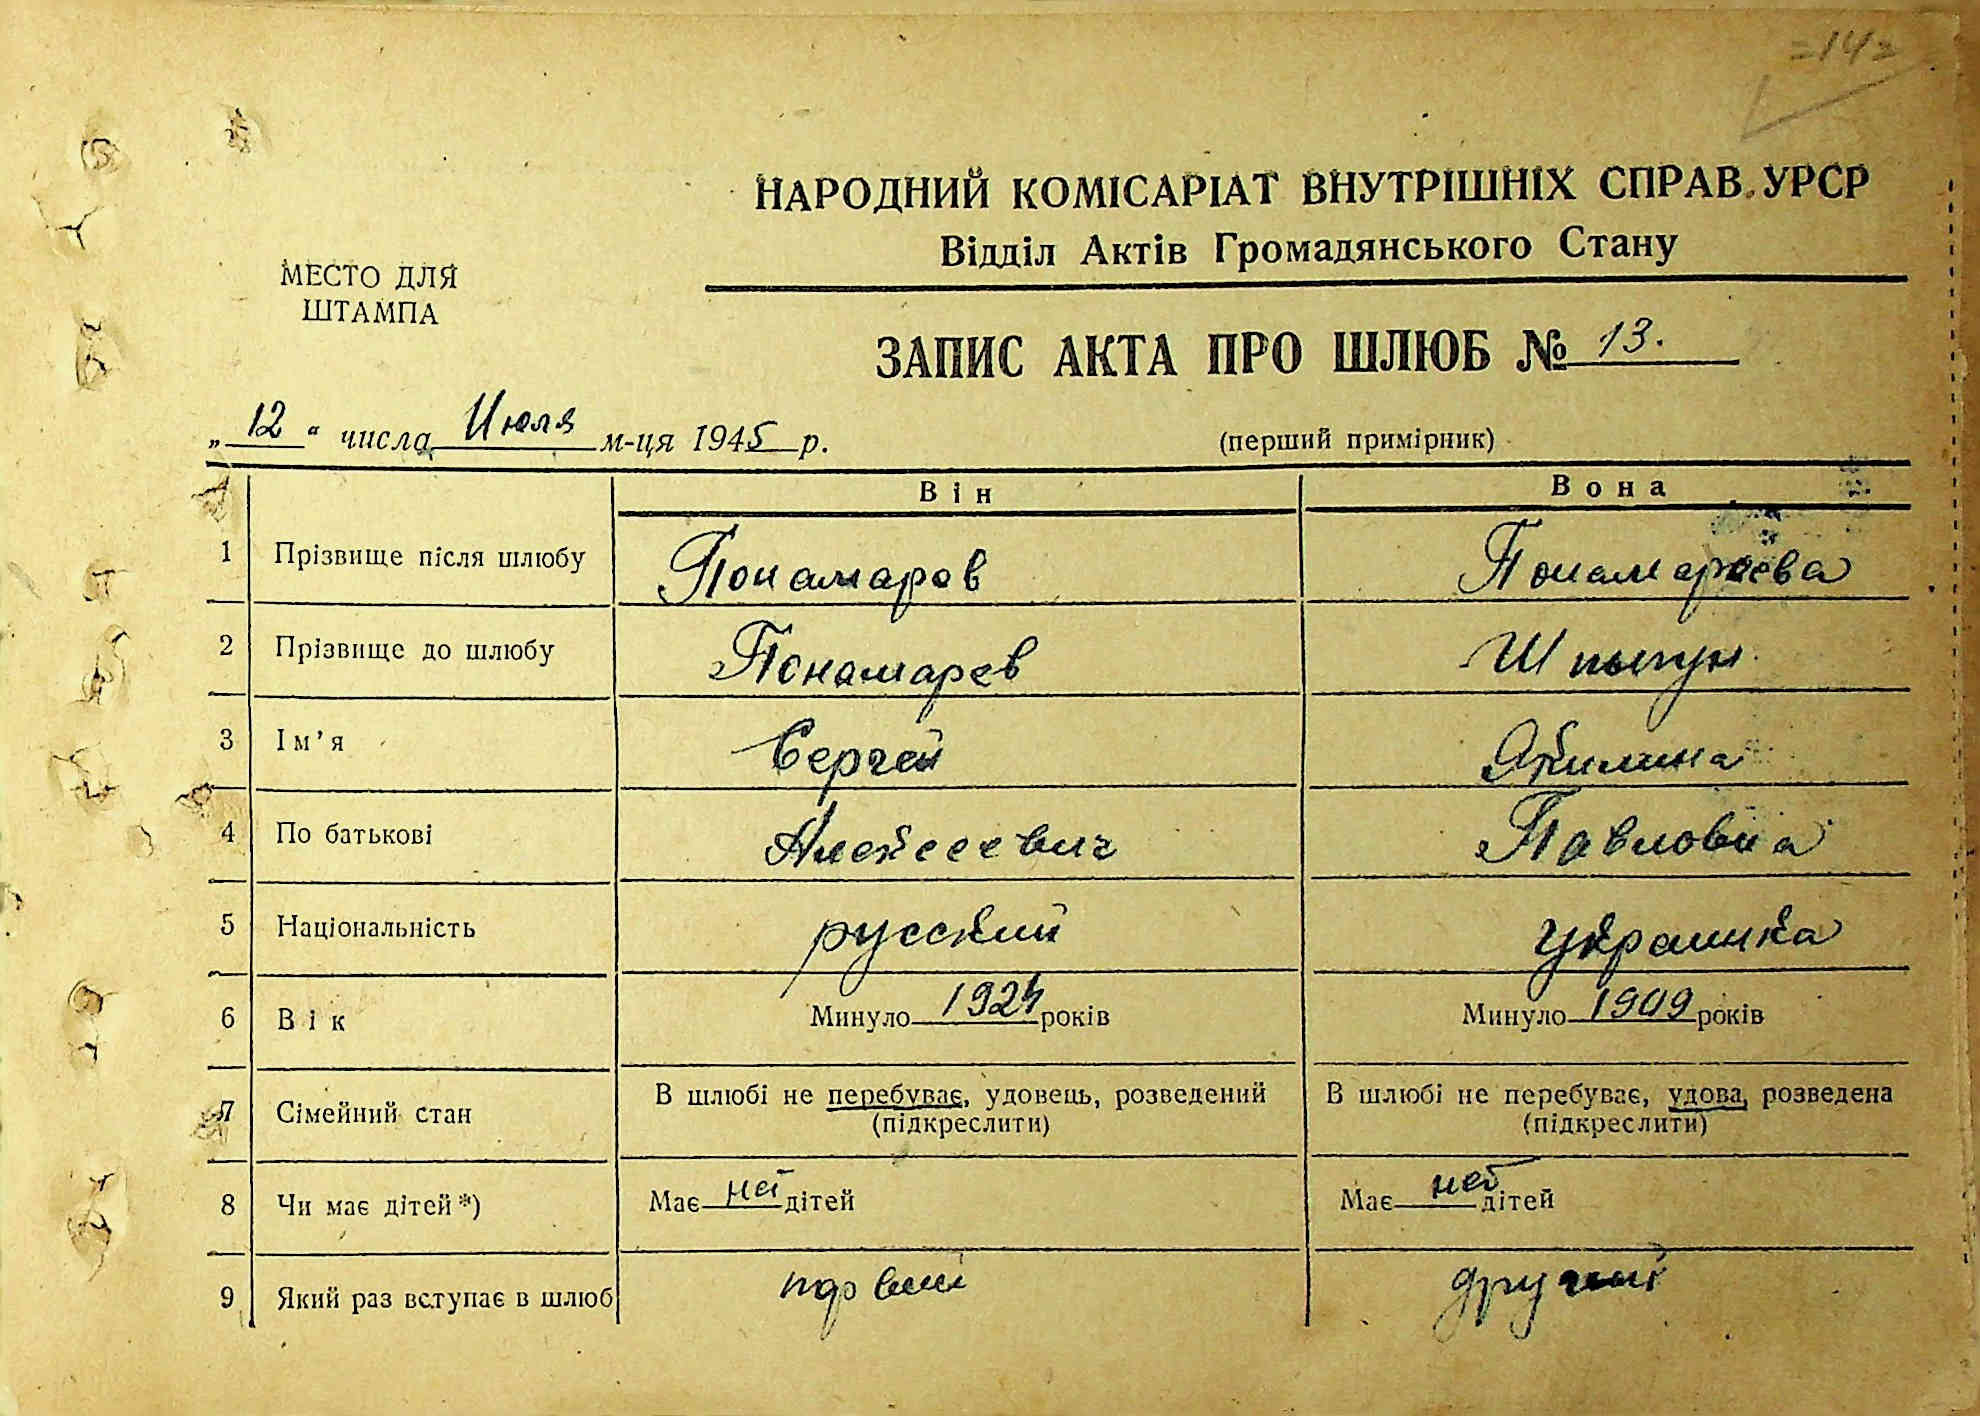 =14=
НАРОДНИЙ КОМІСАРІАТ ВНУТРІШНІХ СПРАВ УРСР
Відділ Актів Громадянського Стану
МЕСТО ДЛЯ
ШТАМПА
ЗАПИС АКТА ПРО ШЛЮБ № 13.
„12“ числа Июля м-ця 1945 р.
(перший примірник)
Він Вона
1 Прізвище після шлюбу Понамарев Понамарева
2 Прізвище до шлюбу Понамарев Шпыгун
3 Ім’я Сергей
4 По батькові Алексеевич Павловна
5 Національність русский украинка
6 Вік Минуло 1924 років Минуло 1909 років
7 Сімейний стан В шлюбі не перебуває, удовець, розведений В шлюбі не перебуває, удова, розведена
(підкреслити) (підкреслити)
8 Чи має дітей*) Має нет дітей Має нет дітей
9 Який раз вступає в шлюб первий другий